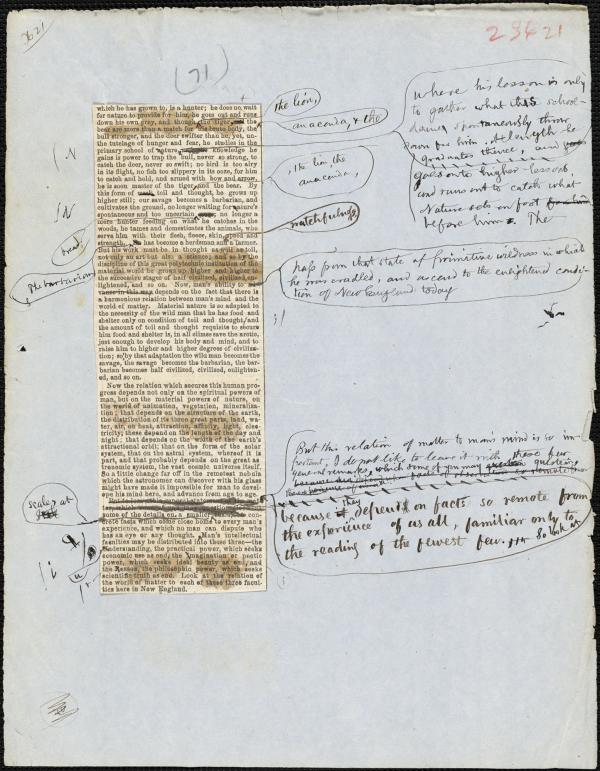 23421
(71)
which he has grown to, is a hunter; he does no wait
for nature to provide for him, he goes out and runs
down his own prey, and though the tiger and the
bear are more than a match for his brute body, the
bull stronger, and the deer swifter than he, yet, un-
the tutelage of hunger and fear, he studies in the
primary school of nature, knowledge he
gains is power to trap the bull, never so strong, to
catch the deer, never so swift; no bird is too airy
in its flight, no fish too slippery in its ooze, for him
to catch and hold, and armed with bow and arrow,
he is soon master of the tiger and the bear. By
this form of toil and thought, he grows up
higher still; our savage becomes a barbarian, and
cultivates the ground, no longer waiting for nature's
spontaneous and too uncertain no longer a
mere hunter feeding on what he catches in the
woods, he tames and domesticates the animals, who
serve him with their flesh, fleece, skin, speed and
strength. has become a herdsman and a farmer.
But his work must be in thought as well as toil,
not only an art but also a science; and so by the
discipline of this great polytechnic institution of the
material world he grows up higher and higher to
the successive stages of half civilized, civilized, en-
lightened, and so on. Now, man's ability to
depends on the fact that there is
a harmonious relation between man's mind and the
world of matter. Material nature is so adapted to
the necessity of the wild man that he has food and
shelter only on condition of toil and thought, and
the amount of toil and thought requisite to secure
him food and shelter is, in all climes save the arctic,
just enough to develop his body and mind, and to
raise him to higher and higher degrees of civiliza-
tion; so by that adaptation the wild man becomes the
savage, the savage becomes the barbarian, the bar-
barian becomes half civilized, civilized, enlighten-
ed, and so on.
Now the relation which secures this human pro-
gress depends not only on the spiritual powers of
man, but on the material powers of nature, on
the world of animation, vegetation, mineraliza-
tion; that depends on the structure of the earth,
the distribution of its three great parts, land, wa-
ter, air, on heat, attraction, affinity, light, elec-
tricity; these depend on the length of the day and
night; that depends on the width of the earth's
attractional orbit; that on the form of the solar
system, that on the astral system, whereof it is
part, and that probably depends on the great as
tronomic system, the vast cosmic universe itself.
So a little change far off in the remotest nebula
which the astronomer can discover with his glass
might have made it impossible for man to devel-
ope his mind here, and advance from age to age.
some of the details on a smaller con-
crete facts which come close home to every man's
experience, and which no man can dispute who
has an eye or any thought. Man's intellectual
faculties may be distributed into these three—the
understanding, the practical power, which seeks
economic use as end; the imagination or poetic
power, which seeks ideal beauty as end; and
the Reason, the philosophic power, which seeks
scientific truth as end. Look at the relation of
the world of matter to each of these three facul-
ties here in New England.
the lion,
anaconda, & the
, the lion, the
anaconda,
watchfulness
where his lesson is only
to gather what this school-
dame spontaneously throws
down for him. At length he
graduates thence, and
goes on to higher lessons
and runs out to catch what
Nature sets on foot
before him. The
the barbarian
pass from that state of primitive wildness in which
he was cradled, and ascend to the enlightend condi-
tion of New England today
But this relation of matter to man's mind is so im-
portant, I do not like to leave it with these few
general remarks, which some of you may question,
because they depend on facts so remote from
the experience of us all, familiar only to
the reading of the fewest few. So look at
scale, at